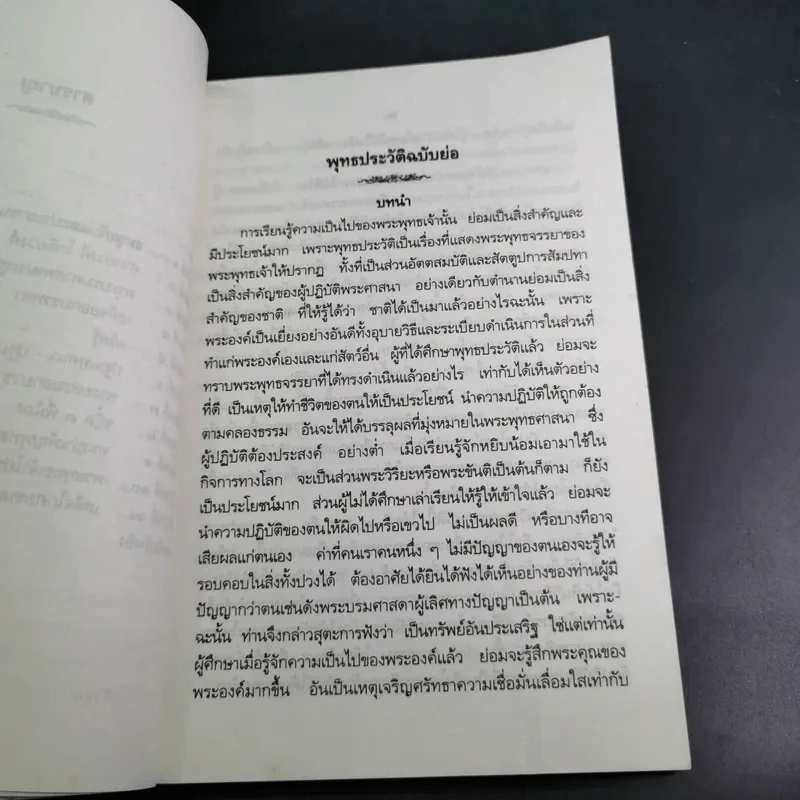 สารบาญ
พุทธประวัติฉบับย่อ
บทนำ
การเรียนรู้ความเป็นไปของพระพุทธเจ้านั้น ย่อมเป็นสิ่งสำคัญและ
มีประโยชน์มาก เพราะพุทธประวัติเป็นเรื่องที่แสดงพระพุทธจรรยาของ
พระพุทธเจ้าให้ปรากฏ ทั้งที่เป็นส่วนอัตตสมบัติและสัตตูปการสัมปทา
เป็นสิ่งสำคัญของผู้ปฏิบัติพระศาสนา อย่างเดียวกับตำนานย่อมเป็นสิ่ง
สำคัญของชาติ ที่ให้รู้ได้ว่า ชาติได้เป็นมาแล้วอย่างไรฉะนั้น เพราะ
พระองค์เป็นเยี่ยงอย่างอันดีทั้งอุบายวิธีและระเบียบดำเนินการในส่วนที่
ทำแก่พระองค์เองและแก่สัตว์อื่น ผู้ที่ได้ศึกษาพุทธประวัติแล้ว ย่อมจะ
ทราบพระพุทธจรรยาที่ได้ทรงดำเนินแล้วอย่างไร เท่ากับได้เห็นตัวอย่าง
ที่ดี เป็นเหตุให้ทำชีวิตของตนให้เป็นประโยชน์ นำความปฏิบัติให้ถูกต้อง
ตามคลองธรรม อันจะให้ได้บรรลุผลที่มุ่งหมายในพระพุทธศาสนา ซึ่ง
ผู้ปฏิบัติต้องประสงค์ อย่างต่ำ เมื่อเรียนรู้จักหยิบน้อมเอามาใช้ใน
กิจการทางโลก จะเป็นส่วนพระวิริยะหรือพระขันติเป็นต้นก็ตาม ก็ยัง
เป็นประโยชน์มาก ส่วนผู้ไม่ได้ศึกษาเล่าเรียนให้รู้ให้เข้าใจแล้ว ย่อมจะ
นำความปฏิบัติของตนให้ผิดไปหรือเขวไป ไม่เป็นผลดี หรือบางทีอาจ
เสียผลแก่ตนเอง ค่าที่คนเราคนหนึ่ง ๆ ไม่มีปัญญาของตนเองจะรู้ให้
รอบคอบในสิ่งทั้งปวงได้ ต้องอาศัยได้ยินได้ฟังได้เห็นอย่างของท่านผู้มี
ปัญญากว่าตนเช่นดังพระบรมศาสดาผู้เลิศทางปัญญาเป็นต้น เพราะ-
ฉะนั้น ท่านจึงกล่าวสุตะการฟังว่า เป็นทรัพย์อันประเสริฐ ใช่แต่เท่านั้น
ผู้ศึกษาเมื่อรู้จักความเป็นไปของพระองค์แล้ว ย่อมจะรู้สึกพระคุณของ
พระองค์มากขึ้น อันเป็นเหตุเจริญศรัทธาความเชื่อมั่นเลื่อมใสเท่ากับ